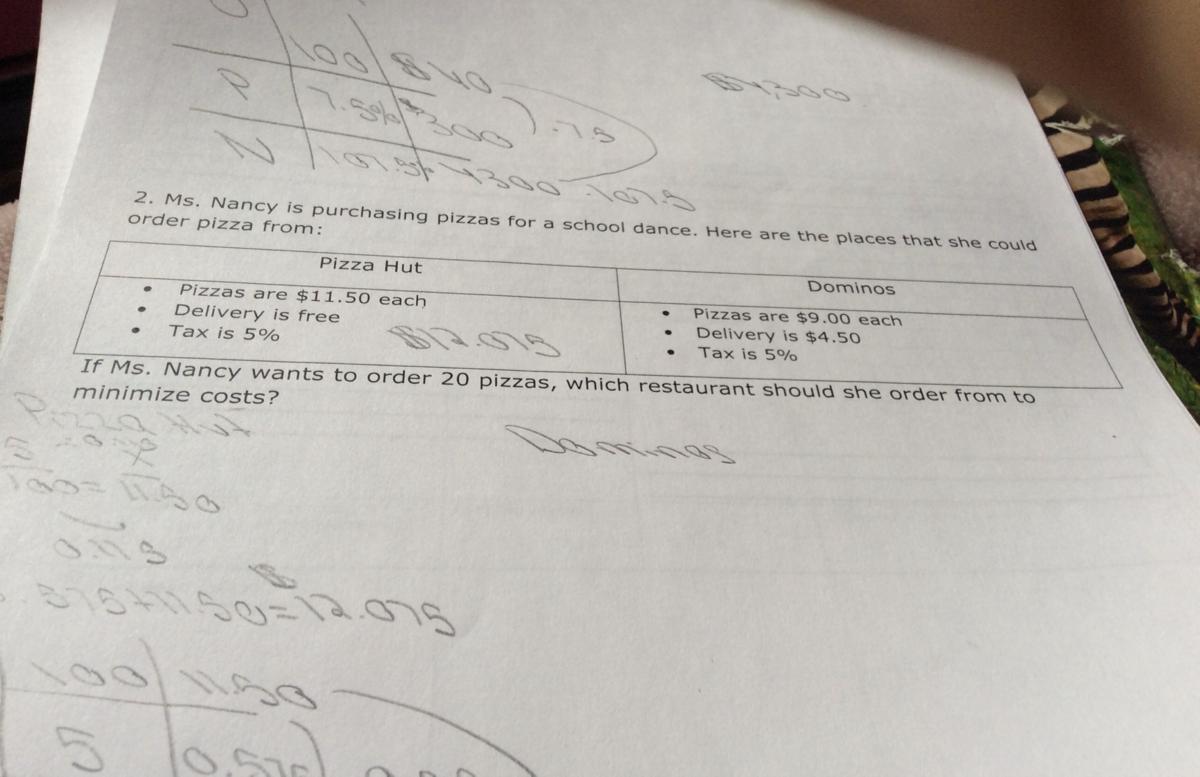 100 $40
P 7.5% $300 .75
$4,300
N 107.5% 4300 .107.5
2. Ms. Nancy is purchasing pizzas for a school dance. Here are the places that she could
order pizza from:
Pizza Hut
Dominos
• Pizzas are $11.50 each
• Delivery is free
• Tax is 5%
$12.075
• Pizzas are $9.00 each
• Delivery is $4.50
• Tax is 5%
If Ms. Nancy wants to order 20 pizzas, which restaurant should she order from to
minimize costs?
Pizza Hut
Dominos
5 P
100 = 11.50
0.115
575+11.50=$12.075
100 11.50
5 0.575